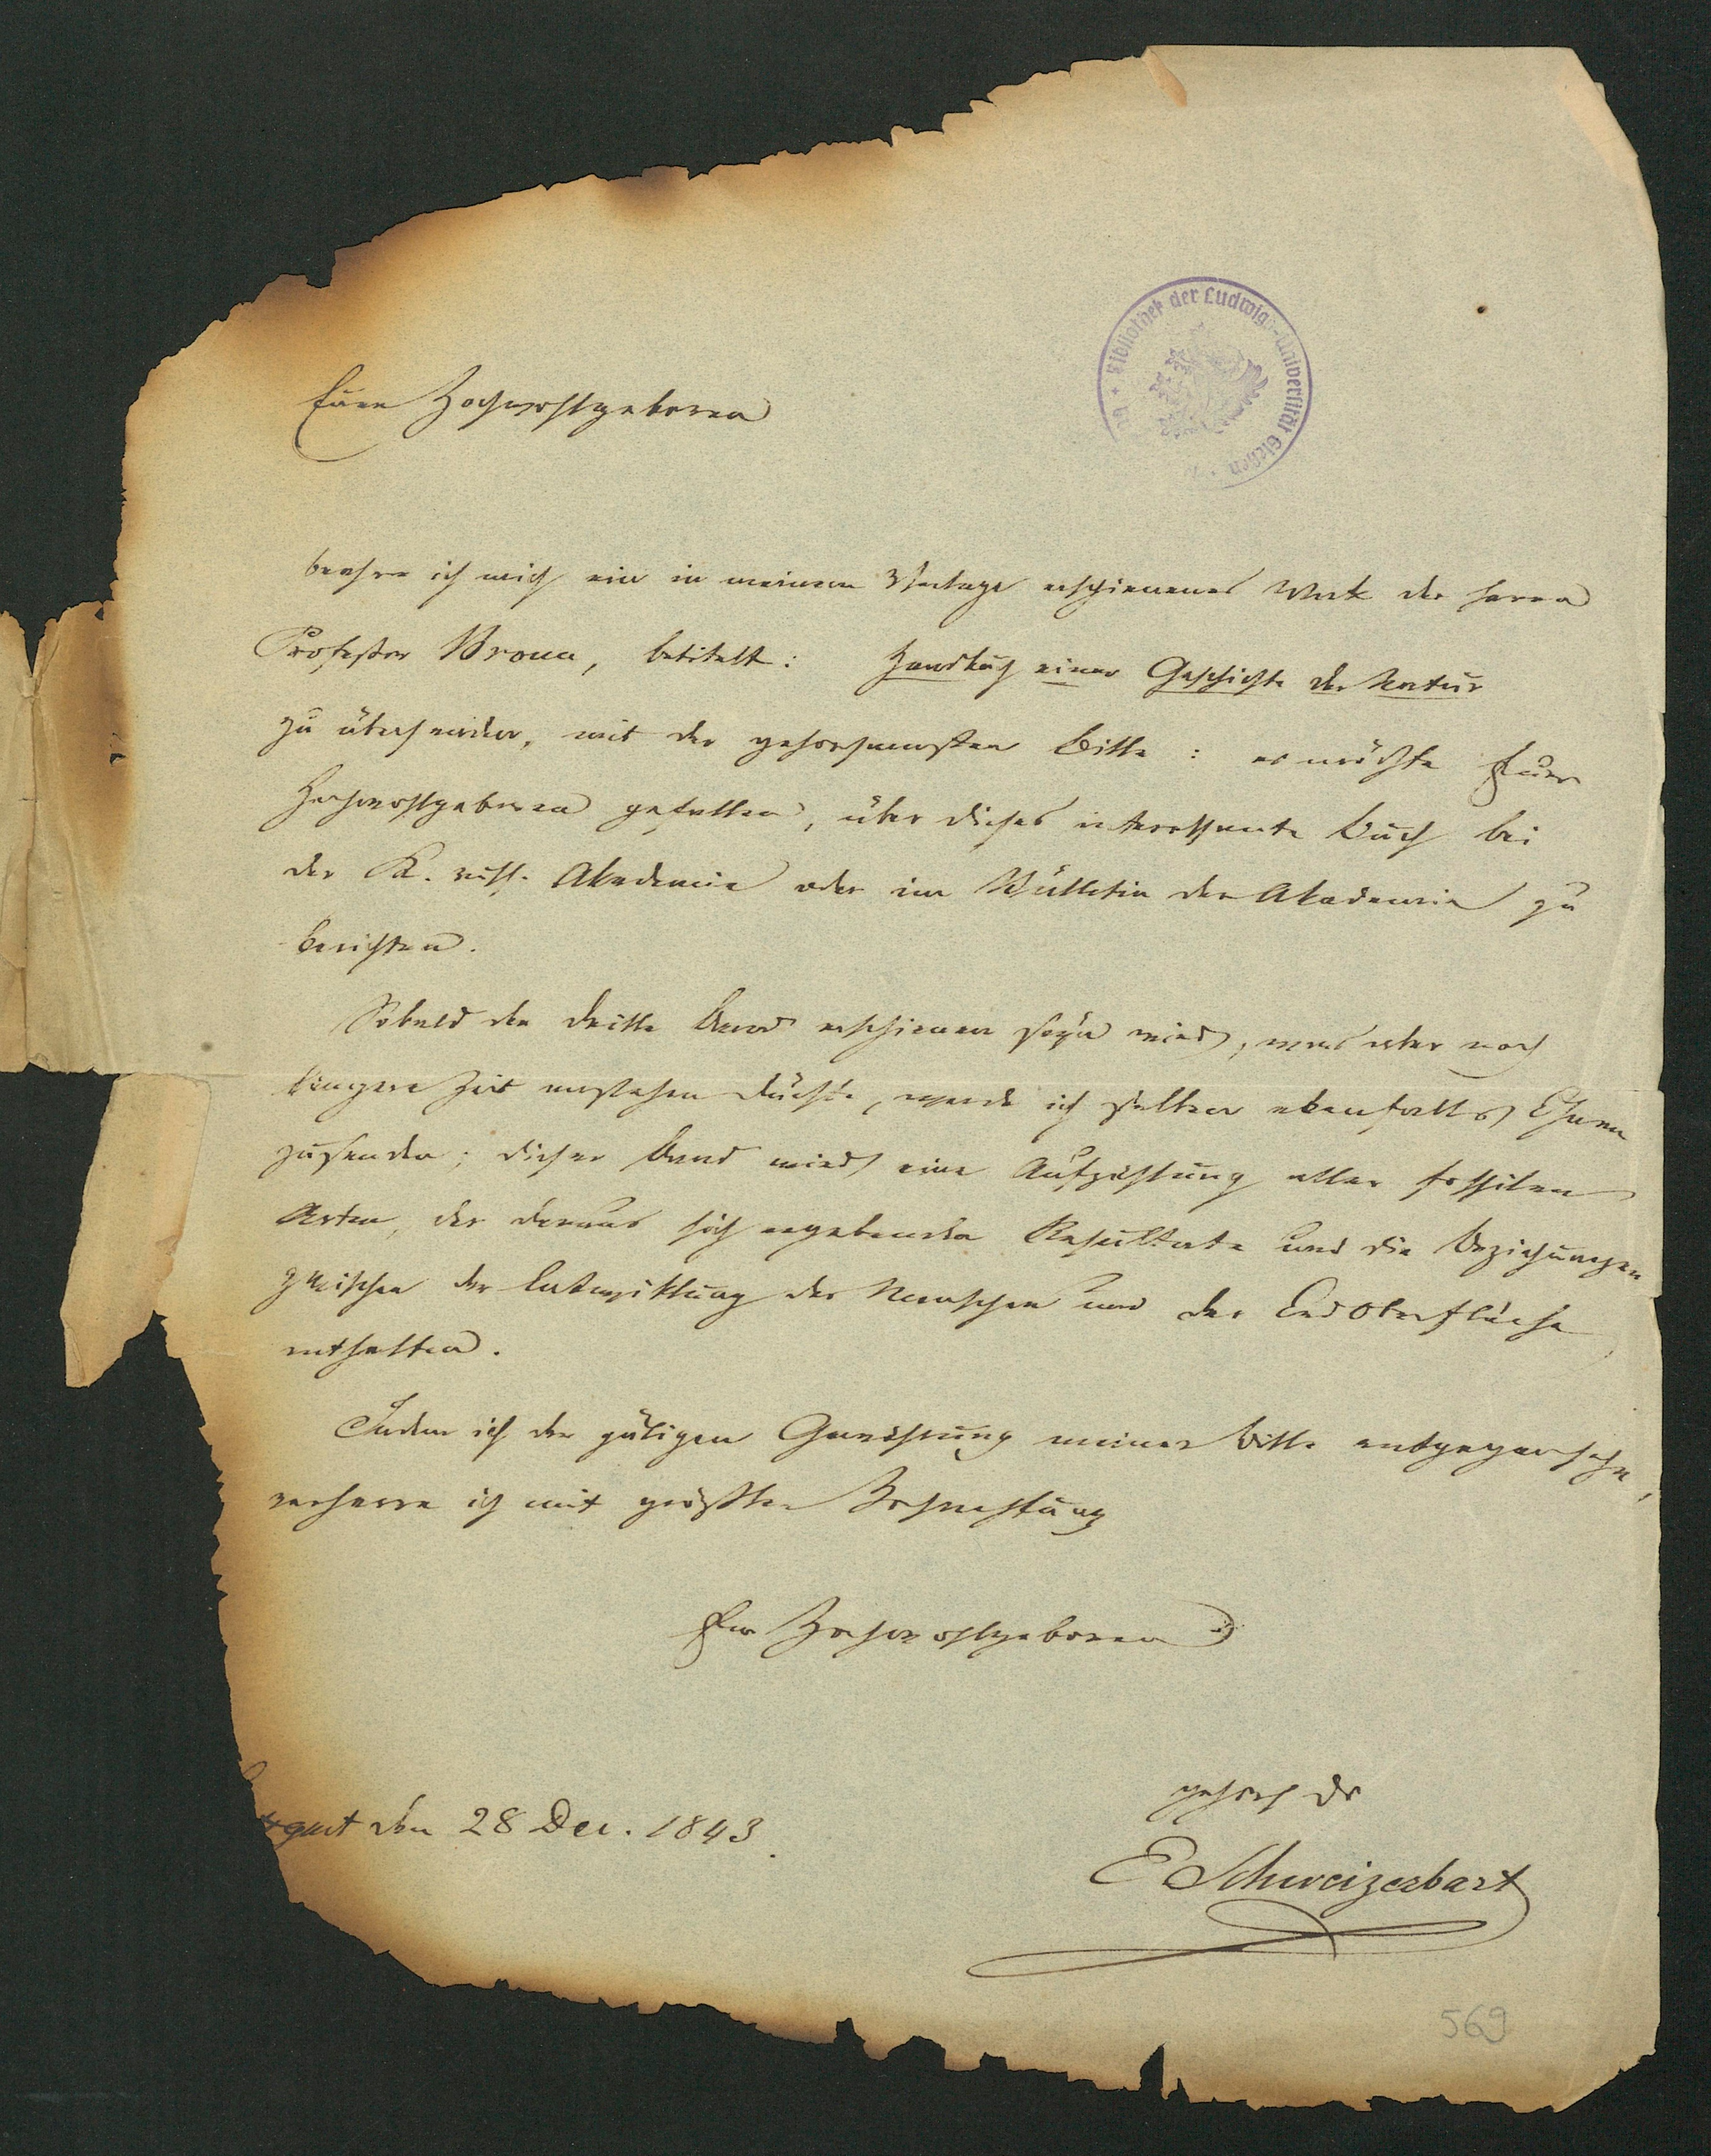 Bibliothek der Ludwigs-Universität Gießen
Euer Hochwohlgeboren
beehre ich mich ein in meinem Verlage erschienenes Werk des Herrn
Professor Bronn, betitelt: Handbuch einer Geschichte der Natur
zu übersenden, mit der gehorsamsten Bitte: es möchte Euer
Hochwohlgeboren gefallen, über dieses interessante Buch bei
der K. russ. Akademie oder im Bülletin der Akademie zu
berichten.
Sobald der dritte Band erschienen seyn wird, was aber noch
längere Zeit anstehen dürfte, werde ich selben ebenfalls Ihnen
zusenden; dieser Band wird eine Aufzählung aller fossilen
Arten, der daraus sich ergebenden Resultate und die Beziehungen
zwischen der Entwicklung des Menschen und der Erdoberfläche
enthalten.
Indem ich der gütigen Gewährung meiner Bitte entgegensehe,
verharre ich mit größter Hochachtung
Euer Hochwohlgeboren
gehors. Dr
ttgart den 28 Dec. 1843.
E Schweizerbart
569